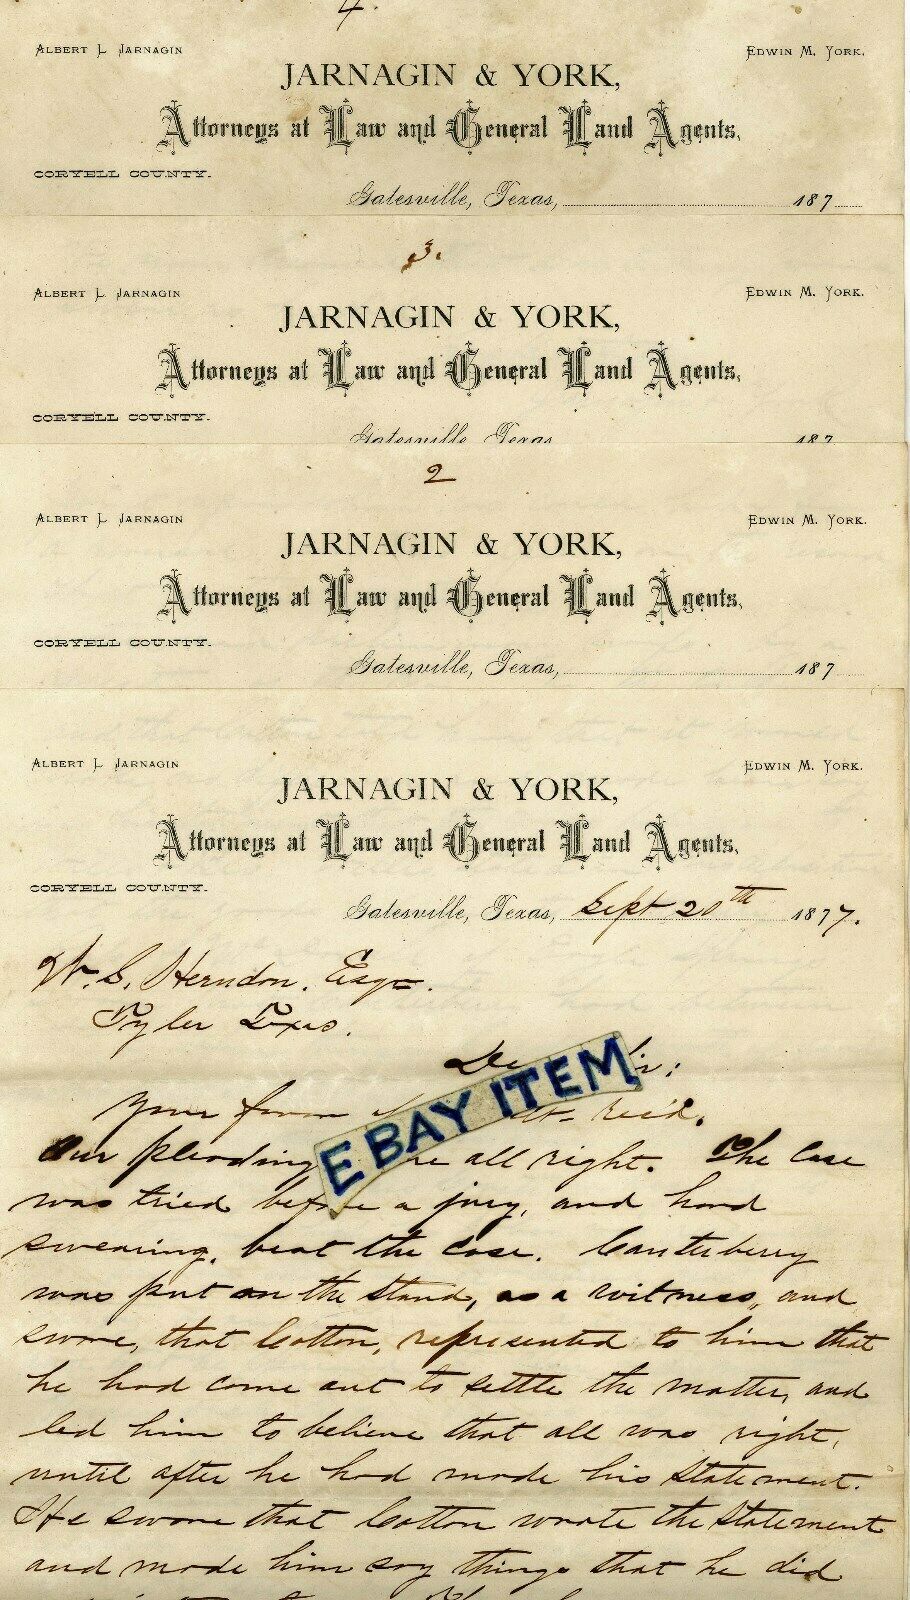 4.
Albert L. Jarnagin Edwin M. York.
JARNAGIN & YORK,
Attorneys at Law and General Land Agents,
CORYELL COUNTY.
Gatesville, Texas, 187
3.
Albert L. Jarnagin Edwin M. York.
JARNAGIN & YORK,
Attorneys at Law and General Land Agents,
CORYELL COUNTY.
Gatesville, Texas 187
2
Albert L. Jarnagin Edwin M. York.
JARNAGIN & YORK,
Attorneys at Law and General Land Agents,
CORYELL COUNTY.
Gatesville, Texas, 187
Albert L. Jarnagin Edwin M. York.
JARNAGIN & YORK,
Attorneys at Law and General Land Agents,
CORYELL COUNTY.
Gatesville, Texas, Sept 20th 1877.
W. S. Herndon, Esq.
Tyler Texas.
:
EBAY ITEM
Your favor rec'd.
Our pleading all right. The case
was tried before a jury, and hard
swearing, beat the case. Canterberry
was put on the stand, as a witness, and
swore, that Cotton, represented to him that
he had come out to settle the matter, and
led him to believe that all was right,
until after he had made his statement.
He swore that Cotton wrote the statement
and made him say things that he did